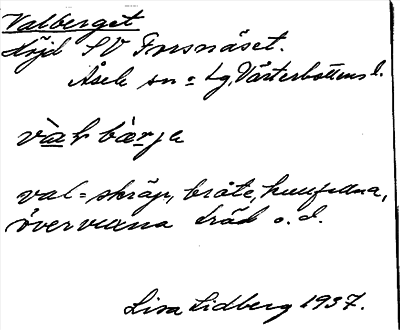 Valberget
Höjd SV Forsnäset.
Åsele sn o Lg, Västerbottens l.
val bärje
val = skräp, bråte, kullfallna,
övervuxna träd o. d.
Lisa Lidberg 1937.